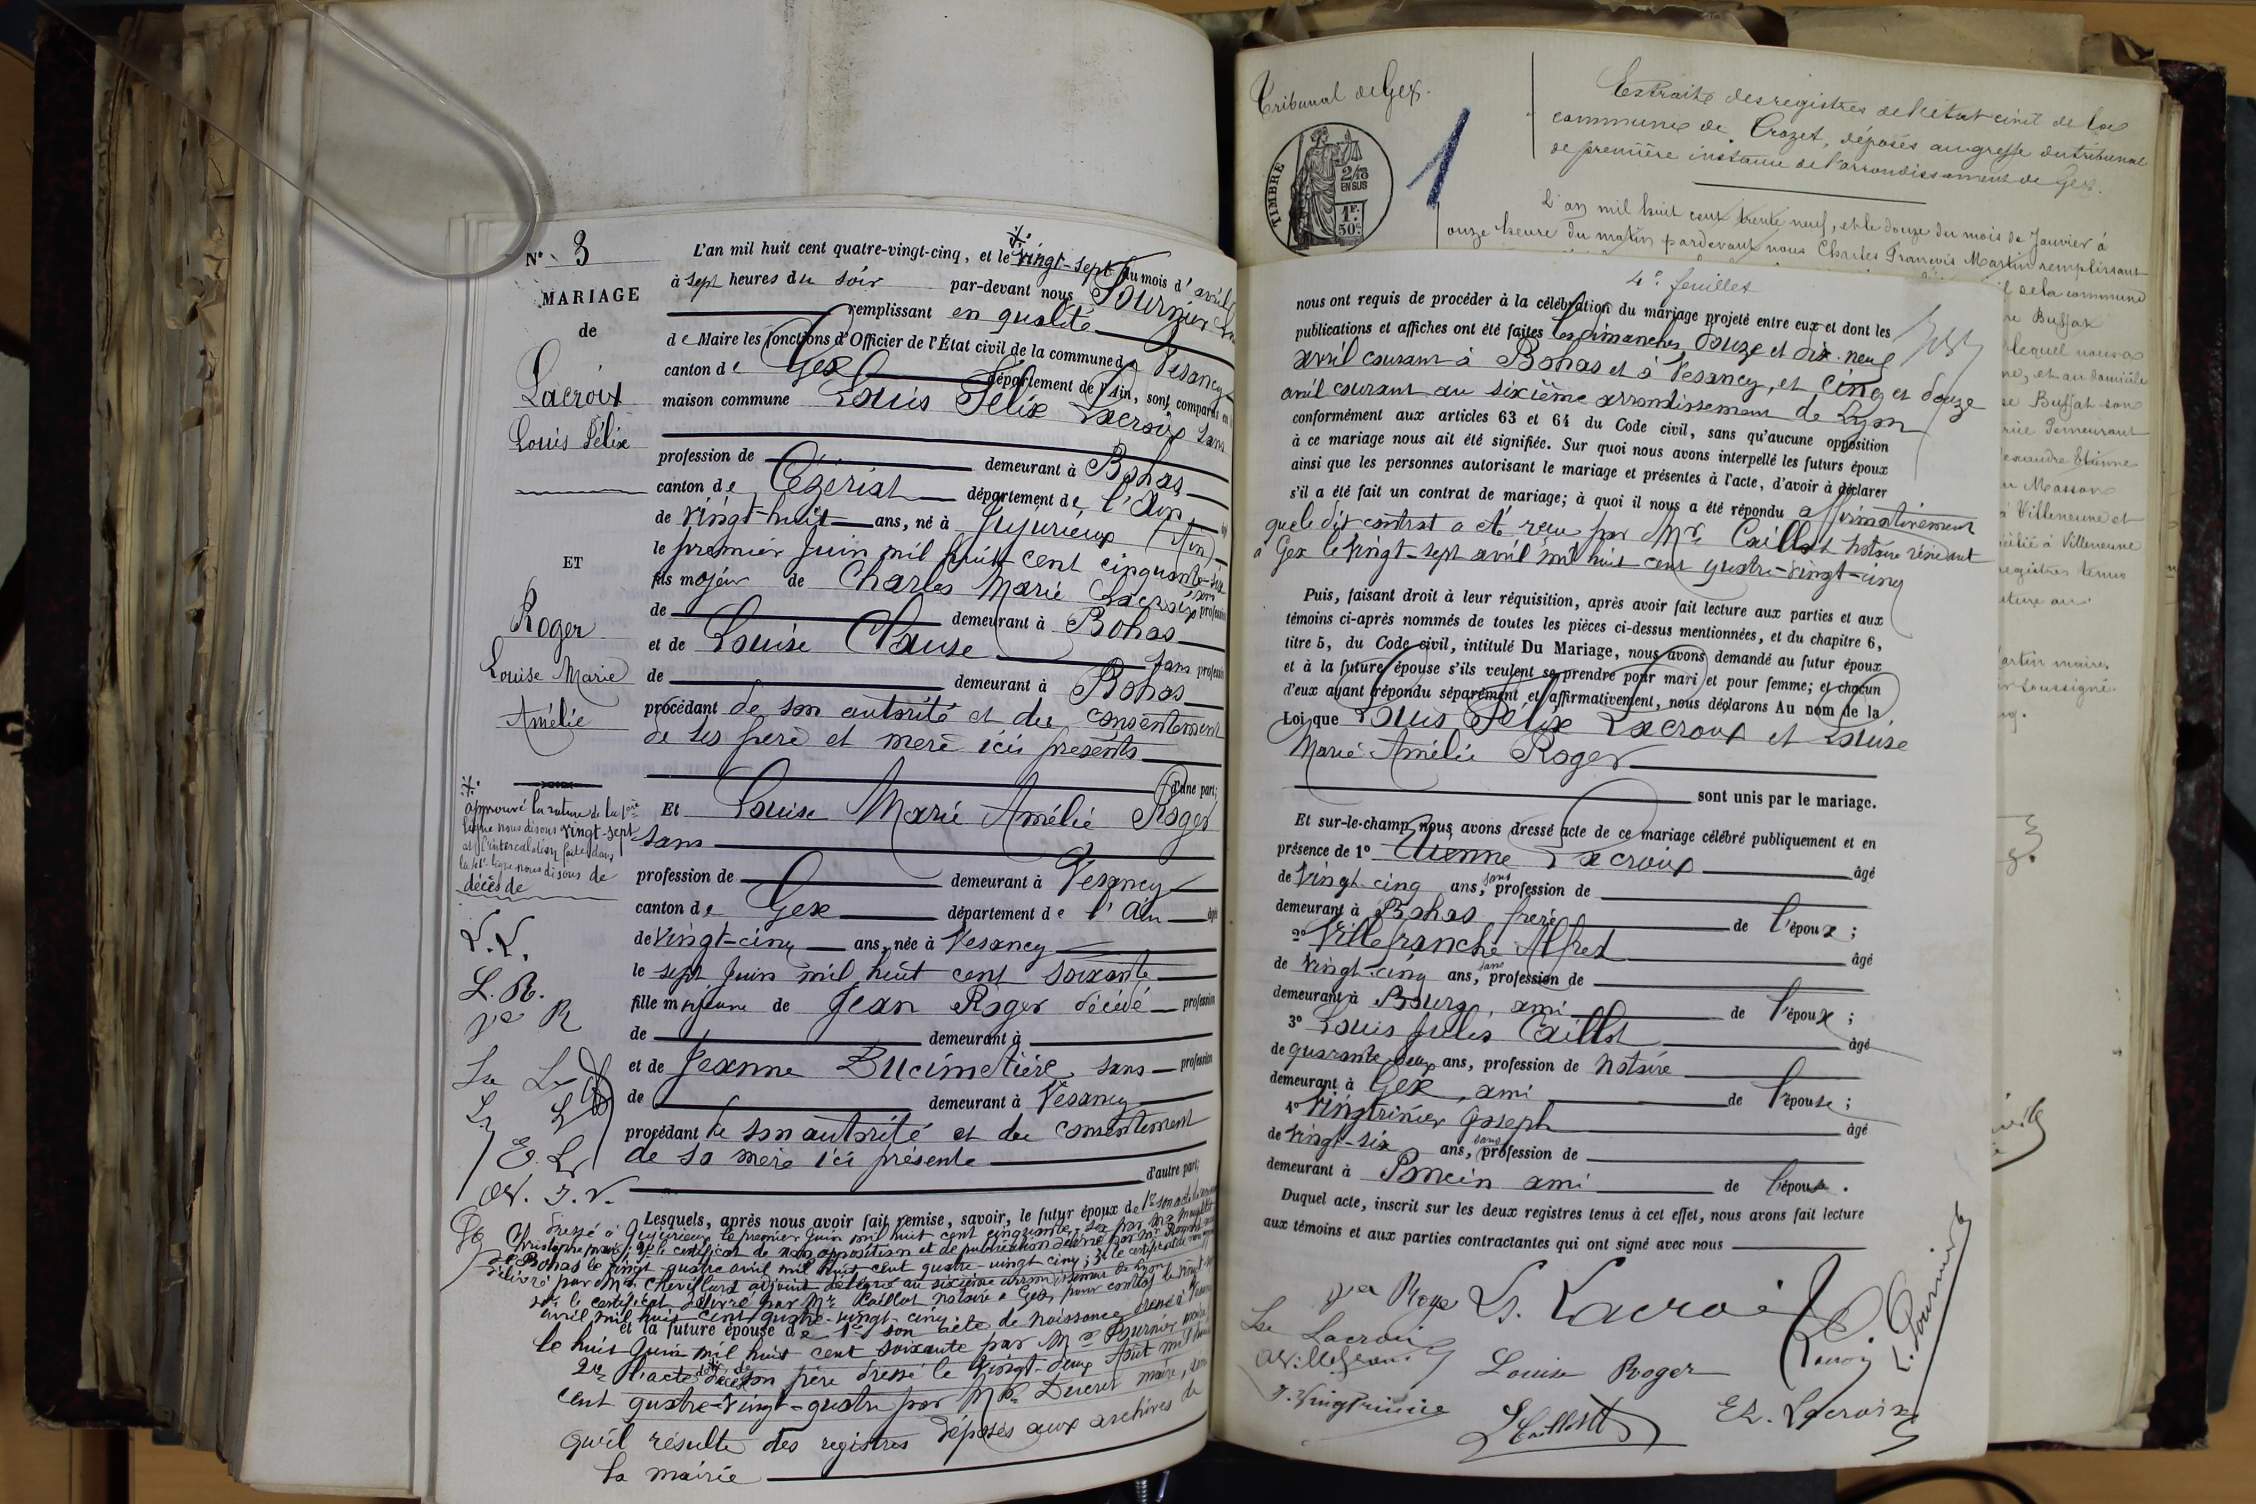 N° 3
MARIAGE
de
Lacroix
Louis Félix
ET
Roger
Louise Marie
Amélie
approuvé la rature de la 1ère
ligne nous disons vingt-sept
et l'intercalation faite dans
la ligne nous disons de
décès de
L. L.
L. R.
Vve R
E. L.
AV. J. V.
L'an mil huit cent quatre-vingt-cinq, et le vingt-sept du mois d'avril
à sept heures du soir par-devant nous Fournier
remplissant en qualité
de Maire les fonctions d'Officier de l'État civil de la commune de Vesancy
canton de Gex département de l'Ain, sont comparus en
maison commune Louis Félix Lacroix sans
profession de demeurant à Bohas
canton de Cézériat département de l'Ain
de vingt-huit ans, né à Jujurieux (Ain)
le premier Juin mil huit cent cinquante-six
fils majeur de Charles Marie Lacroix sans profession
de demeurant à Bohas
et de Louise Clause sans profession
de demeurant à Bohas
procédant de son autorité et du consentement
de ses père et mère ici présents
d'une part;
Et Louise Marie Amélie Roger
sans
profession de demeurant à Vesancy
canton de Gex département de l'Ain âgée
de vingt-cinq ans, née à Vesancy
le sept Juin mil huit cent soixante
fille majeure de Jean Roger décédé profession
de demeurant à
et de Jeanne Ducimetière sans profession
de demeurant à Vesancy
procédant de son autorité et du consentement
de sa mère ici présente
d'autre part;
Lesquels, après nous avoir fait remise, savoir, le futur époux de 1° son acte de naissance
dressé à Jujurieux le premier Juin mil huit cent cinquante-six par
Christophe maire; 2° le certificat de non opposition et de publication délivré par Mr
de Bohas le vingt-quatre avril mil huit cent quatre-vingt-cinq; 3° le certificat de non
délivré par Mr Chevillard adjoint délégué au sixième arrondissement de Lyon
le certificat délivré par Mr Caillat notaire à Gex, pour contrat le vingt-sept
avril mil huit cent quatre-vingt-cinq.
et la future épouse de 1° son acte de naissance dressé à Vesancy
le huit Juin mil huit cent soixante par Mr Fournier maire
2° l'acte de décès de son père dressé le vingt-deux Août mil huit
cent quatre-vingt-quatre par Mr Ducret maire,
qu'il résulte des registres déposés aux archives de
la mairie
Tribunal de Gex.
TIMBRE
2/10
EN SUS
1F.
50c.
1
Extraits des registres de l'état civil de la
commune de Crozet, déposés au greffe du tribunal
de première instance de l'arrondissement de Gex.
L'an mil huit cent trente neuf, et le douze du mois de Janvier à
onze heure du matin pardevant nous Charles François Martin remplissant
4e feuillet
nous ont requis de procéder à la célébration du mariage projeté entre eux et dont les
publications et affiches ont été faites les dimanches douze et dix-neuf
avril courant à Bohas et à Vesancy, et cinq et douze
avril courant au sixième arrondissement de Lyon
conformément aux articles 63 et 64 du Code civil, sans qu'aucune opposition
à ce mariage nous ait été signifiée. Sur quoi nous avons interpellé les futurs époux
ainsi que les personnes autorisant le mariage et présentes à l'acte, d'avoir à déclarer
s'il a été fait un contrat de mariage; à quoi il nous a été répondu affirmativement
que le dit contrat a été reçu par Mr Caillat notaire résidant
à Gex le vingt-sept avril mil huit cent quatre-vingt-cinq
Puis, faisant droit à leur réquisition, après avoir fait lecture aux parties et aux
témoins ci-après nommés de toutes les pièces ci-dessus mentionnées, et du chapitre 6,
titre 5, du Code civil, intitulé Du Mariage, nous avons demandé au futur époux
et à la future épouse s'ils veulent se prendre pour mari et pour femme; et chacun
d'eux ayant répondu séparément et affirmativement, nous déclarons Au nom de la
Loi que Louis Félix Lacroix et Louise
Marie Amélie Roger
sont unis par le mariage.
Et sur-le-champ nous avons dressé acte de ce mariage célébré publiquement et en
présence de 1° Etienne Lacroix âgé
de vingt-cinq ans, sans profession de
demeurant à Bohas frère de l'époux;
2° Villefranche Alfred âgé
de vingt-cinq ans, sans profession de
demeurant à Bourg, ami de l'époux;
3° Louis Jules Caillat âgé
de quarante-deux ans, profession de notaire
demeurant à Gex, ami de l'épouse;
4° Vingtrinier Joseph âgé
de vingt-six ans, sans profession de
demeurant à Poncin ami de l'époux.
Duquel acte, inscrit sur les deux registres tenus à cet effet, nous avons fait lecture
aux témoins et aux parties contractantes qui ont signé avec nous
Vve Roger L. Lacroix
L. Fournier
Lse Lacroix
Lacroix
AVillefranche
Louise Roger
J. Vingtrinier
JCaillat
Et. Lacroix